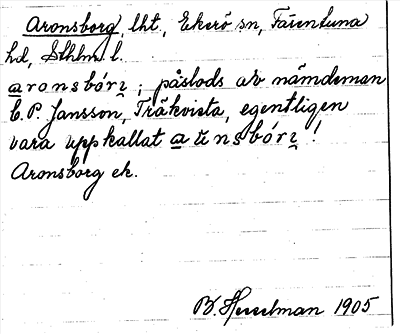 Aronsborg, lht, Ekerö sn, Färentuna
hd, Sthlm l.
aronsbórz; påstods av nämdeman
C.P. Jansson, Träkvista, egentligen
vara uppkallat nsbórz!
Aronsborg ek.
B. Hesselman 1905